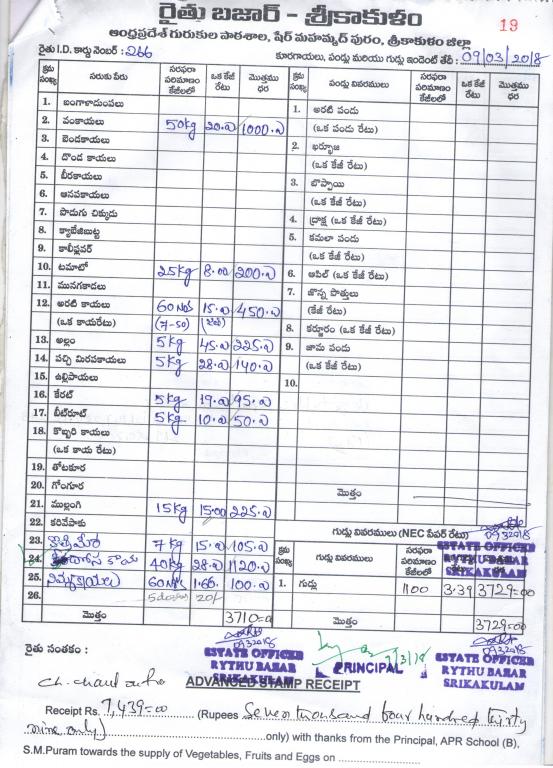 రైతు బజార్ - శ్రీకాకుళం
19
ఆంధ్రప్రదేశ్ గురుకుల పాఠశాల, షేర్ మహమ్మద్ పురం, శ్రీకాకుళం జిల్లా
రైతు I.D. కార్డు నెంబర్ : 266
కూరగాయలు, పండ్లు మరియు గుడ్లు ఇండెంట్ తేదీ : 09/03/2018
క్రమ సంఖ్య సరుకు పేరు సరఫరా పరిమాణం కేజీలలో ఒక కేజీ రేటు మొత్తము ధర
1. బంగాళాదుంపలు
2. వంకాయలు 50kg 20.00 1000.00
3. బెండకాయలు
4. దొండ కాయలు
5. బీరకాయలు
6. ఆనపకాయలు
7. పొడుగు చిక్కుడు
8. క్యాబేజిబుట్ట
9. కాలీఫ్లవర్
10. టమాటో 25kg 8.00 200.00
11. మునగకాడలు
12. అరటి కాయలు 60 Nos 15.00 450.00
(ఒక కాయరేటు) (7-50)
13. అల్లం 5kg 45.00 225.00
14. పచ్చి మిరపకాయలు 5kg 28.00 140.00
15. ఉల్లిపాయలు
16. కేరట్ 5kg 19.00 95.00
17. బీట్‌రూట్ 5kg 10.00 50.00
18. కొబ్బరి కాయలు
(ఒక కాయ రేటు)
19. తోటకూర
20. గోంగూర
21. ముల్లంగి 15kg 15.00 225.00
22. కరివేపాకు
23. కొత్తిమీర 7kg 15.00 105.00
24. దోస కాయ 40kg 28.00 1120.00
25. నిమ్మకాయలు 60 Nos 1.66 100.00
26. 5 dozens 20/-
మొత్తం 3710=00
క్రమ సంఖ్య పండ్లు వివరములు సరఫరా పరిమాణం కేజీలలో ఒక కేజీ రేటు మొత్తము ధర
1. అరటి పండు
(ఒక పండు రేటు)
2. ఖర్బూజ
(ఒక కేజీ రేటు)
3. బొప్పాయి
(ఒక కేజీ రేటు)
4. ద్రాక్ష (ఒక కేజీ రేటు)
5. కమలా పండు
(ఒక కేజీ రేటు)
6. ఆపిల్ (ఒక కేజీ రేటు)
7. జొన్న పొత్తులు
(కేజీ రేటు)
8. కర్జూరం (ఒక కేజీ రేటు)
9. జామ పండు
(ఒక కేజీ రేటు)
10.
మొత్తం
గుడ్లు వివరములు (NEC పేపర్ రేటు)
0932018
ESTATE OFFICER
RYTHU BAZAR
SRIKAKULAM
క్రమ సంఖ్య గుడ్లు వివరములు సరఫరా పరిమాణం కేజీలలో
1. గుడ్లు 1100 3.39 3729=00
మొత్తం 3729=00
రైతు సంతకం :
0932018
ESTATE OFFICER
RYTHU BAZAR
SRIKAKULAM
9/3/18
PRINCIPAL
0932018
ESTATE OFFICER
RYTHU BAZAR
SRIKAKULAM
ADVANCED STAMP RECEIPT
Receipt Rs. 7,439=00 (Rupees Seven thousand four hundred thirty
nine only) only) with thanks from the Principal, APR School (B),
S.M.Puram towards the supply of Vegetables, Fruits and Eggs on